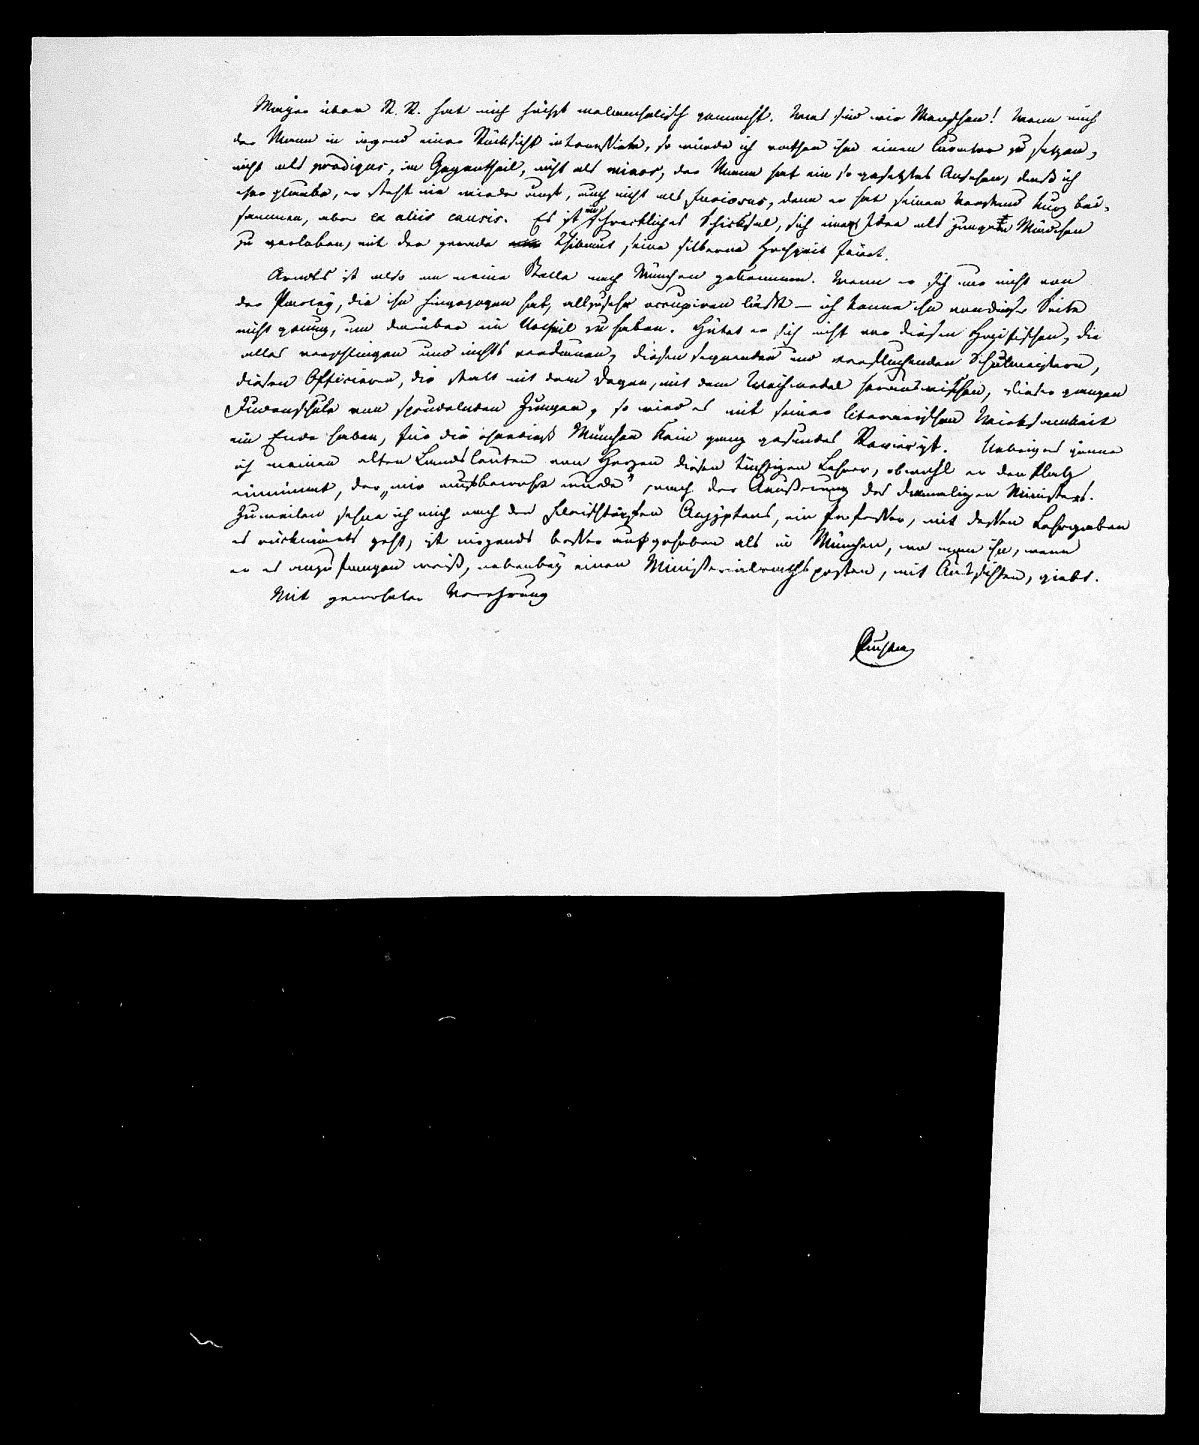 über N. N. hat mich höchst melancholisch gemacht. Was sind wir Menschen! Wenn mich
der Mann in irgend einer Rücksicht interessirte, so würde ich rathen ihm einen Curator zu setzen,
nicht als prodigus, im Gegentheil, nicht als minor, der Mann hat ein so gesetztes Ansehen, daß ich
eher glaube, er steht nie wieder auf, auch nicht als furiosus, denn er hat seinen Verstand kurz bei-
sammen, aber ex aliis causis. Es ist ein schreckliches Schicksal, sich einer Idee als jungen Mädchen
zu verloben, mit der gerade Thibaut seine silberne Hochzeit feiert.
Arndts ist also an meine Stelle nach München gekommen. Wenn er sich nur nicht von
der Parthey, die ihn hingezogen hat, allzusehr occupiren läßt – ich kenne ihn von dieser Seite
nicht genug, um darüber ein Urtheil zu haben. Hütet er sich nicht vor diesen Haifischen, die
alles verschlingen und nichts verdauen, diesen und verfluchenden Schulmeistern,
diesen Officieren, die statt mit dem Degen, mit dem Weihwedel herauswischen, dieser ganzen
Judenschule von sprudelnden Zungen, so wird es mit seiner literarischen Wirksamkeit
ein Ende haben, für die ohnedieß München kein ganz gesundes Revier ist. Uebrigens gönne
ich meinen alten Landsleuten von Herzen diesen tüchtigen Lehrer, obwohl er den Platz
einnimmt, der „mir aufbewahrt wurde“, nach der Äußerung des damaligen Ministers.
Zuweilen sehne ich mich nach den Fleischtöpfen Aegyptens, ein Professor, mit dessen Lehrgaben
es rückwärts geht, ist nirgends besser aufgehoben als in München, wo man ihm, wenn
er es anzufangen weiß, nebenbey einen Ministerialrathsposten, mit Aussichten, giebt.
Mit gewohnter Verehrung
Puchta